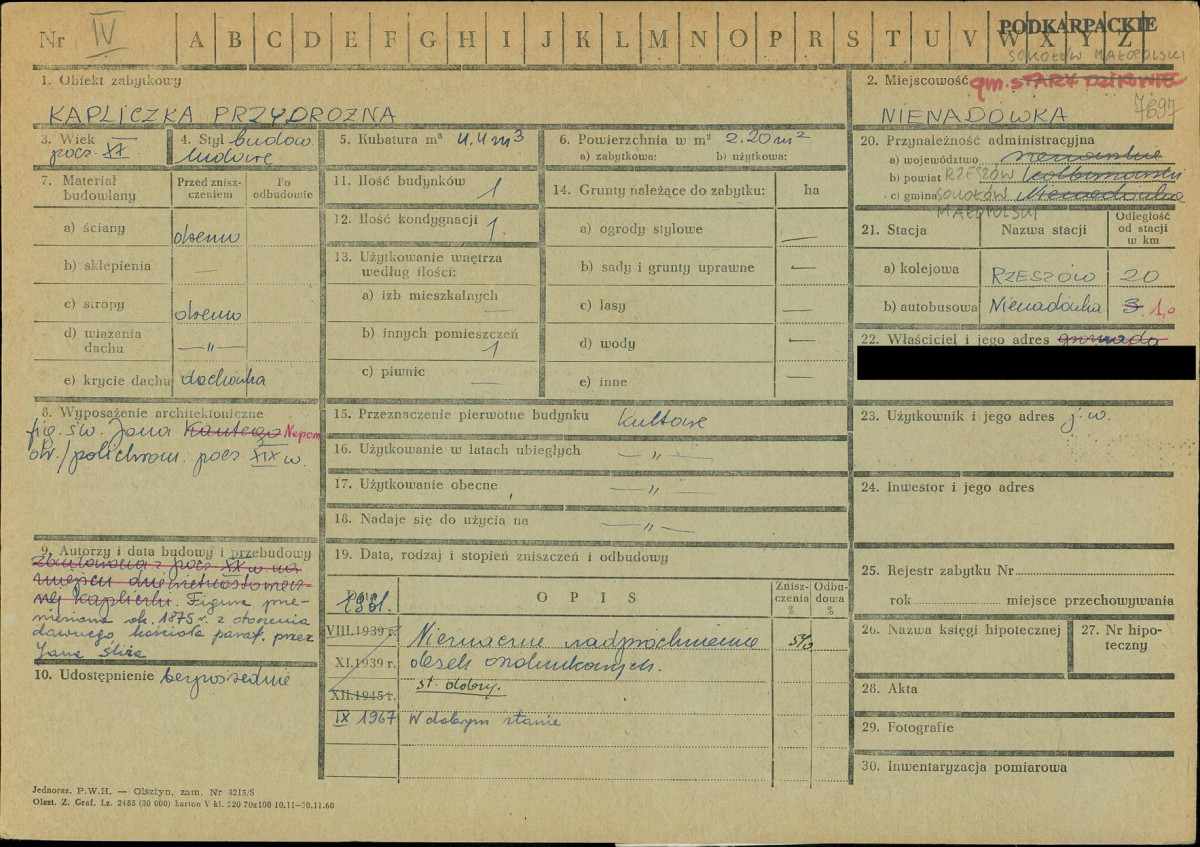 Nr IV A B C D E F G H I J K L M N O P R S T U V W X Y Z
PODKARPACKIE
SOKOŁÓW MAŁOPOLSKI
1. Obiekt zabytkowy
KAPLICZKA PRZYDROŻNA
2. Miejscowość gm. STARY DZIKOWIEC
NIENADÓWKA 7697
3. Wiek
pocz. XX
4. Styl budow.
ludowe
5. Kubatura m³ 4.4 m3
6. Powierzchnia w m² 2.20 m2
a) zabytkowa: b) użytkowa:
7. Materiał budowlany
Przed zniszczeniem
Po odbudowie
a) ściany drewno
b) sklepienia —
c) stropy drewno
d) wiązania dachu —„—
e) krycie dachu dachówka
8. Wyposażenie architektoniczne
fig. św. Jana Kantego Nepom
drr./polichrom. pocz XIX w.
9. Autorzy i data budowy i przebudowy
Zbudowana z pocz XX w. na
miejscu
nej kapliczki. Figura prze-
niesiona ok. 1875 r. z otoczenia
dawnego kościoła paraf. przez
Jana Śliża
10. Udostępnienie bezpośrednie
11. Ilość budynków 1
12. Ilość kondygnacji 1
13. Użytkowanie wnętrza według ilości:
a) izb mieszkalnych —
b) innych pomieszczeń 1
c) piwnic —
14. Grunty należące do zabytku: ha
a) ogrody stylowe —
b) sady i grunty uprawne —
c) lasy —
d) wody —
e) inne —
15. Przeznaczenie pierwotne budynku kultowe
16. Użytkowanie w latach ubiegłych —„—
17. Użytkowanie obecne —„—
18. Nadaje się do użycia na —„—
19. Data, rodzaj i stopień zniszczeń i odbudowy
1961. OPIS Zniszczenia % Odbudowa %
VIII.1939 r. Nieznaczne nadpróchnienie 5%
XI.1939 r.
desek
st. dobry.
XII.1945 r.
IX 1967 W dobrym stanie
20. Przynależność administracyjna
a) województwo rzeszowskie
b) powiat RZESZÓW Kolbuszowski
c) gmina SOKOŁÓW MAŁOPOLSKI Nienadówka
21. Stacja Nazwa stacji Odległość od stacji w km
a) kolejowa RZESZÓW 20
b) autobusowa Nienadówka 3 1,0
22. Właściciel i jego adres
23. Użytkownik i jego adres j.w.
24. Inwestor i jego adres
25. Rejestr zabytku Nr
rok miejsce przechowywania
26. Nazwa księgi hipotecznej
27. Nr hipoteczny
28. Akta
29. Fotografie
30. Inwentaryzacja pomiarowa
Jednoraz. P.W.H. — Olsztyn, zam. Nr 3215/S
Olszt. Z. Graf. Lz. 2485 (30 000) karton V kl. 220 70x100 10.11—30.11.60